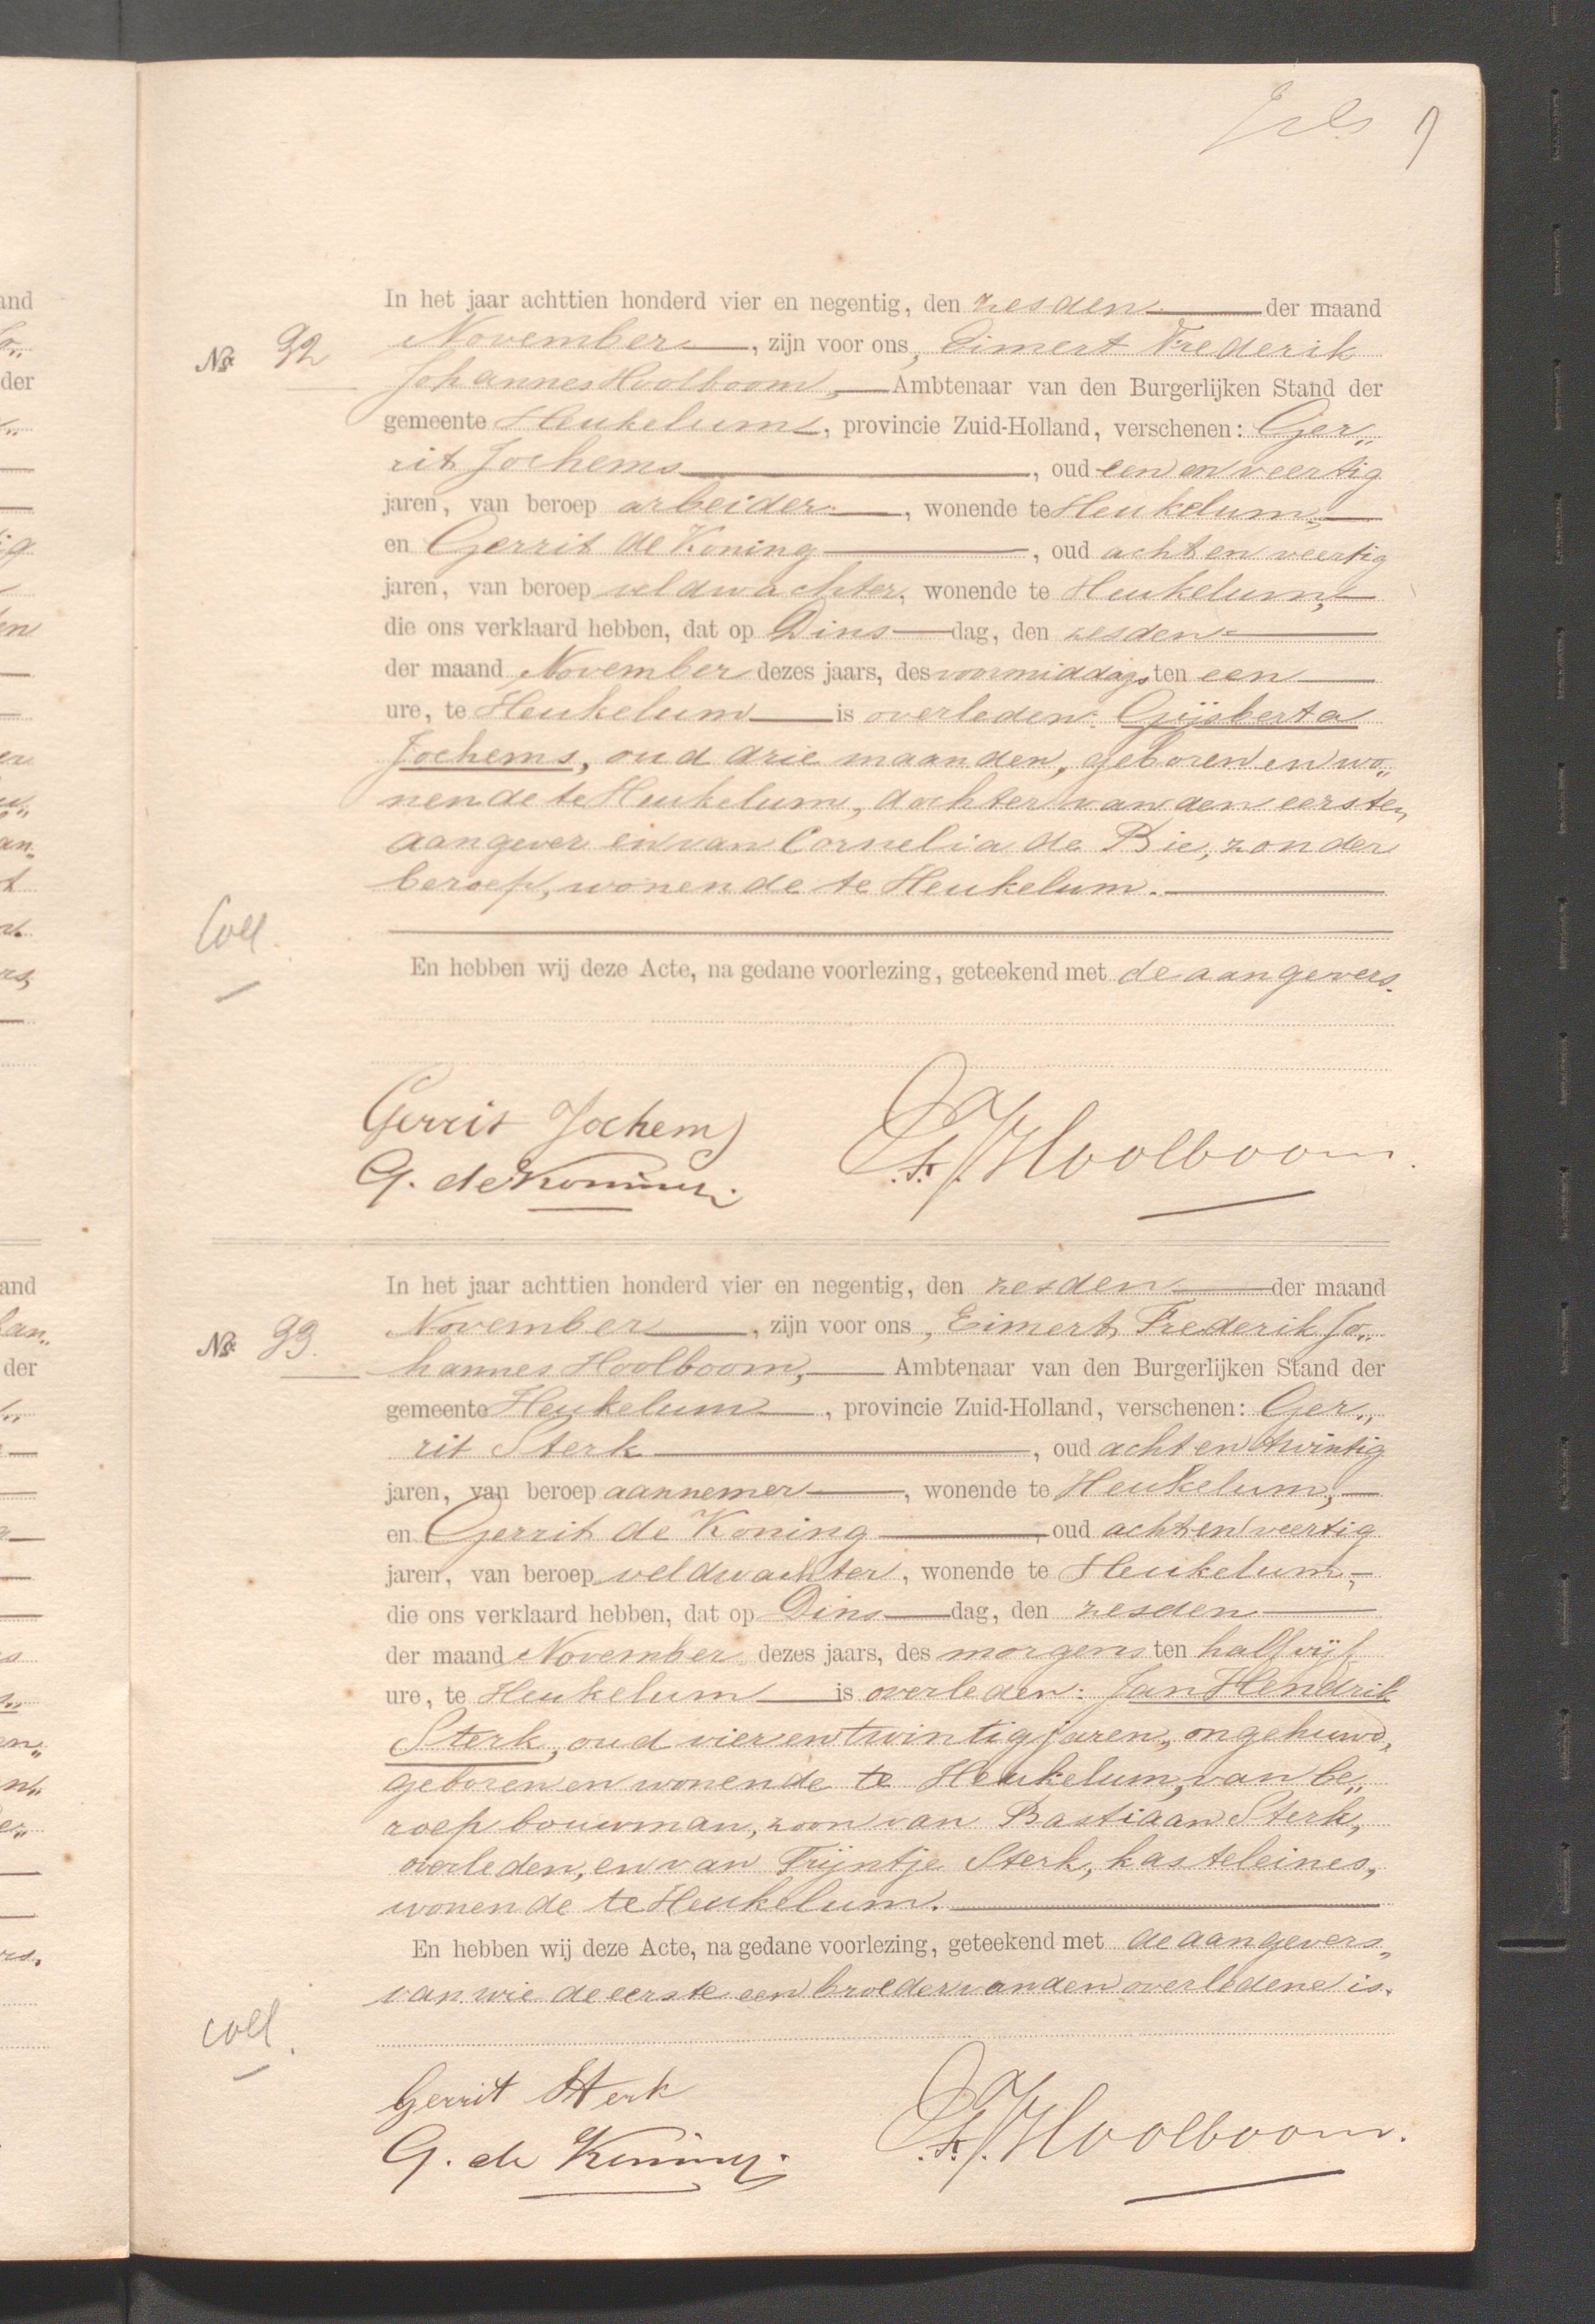 7
In het jaar achttien honderd vier en negentig, den zesden der maand
No. 92 November, zijn voor ons, Eimert Frederik
Johannes Hoolboom, Ambtenaar van den Burgerlijken Stand der
gemeente Heukelum, provincie Zuid-Holland, verschenen: Ger„
rit Jochems, oud een en veertig
jaren, van beroep arbeider, wonende te Heukelum,
en Gerrit de Koning, oud acht en veertig
jaren, van beroep veldwachter, wonende te Heukelum,
die ons verklaard hebben, dat op Dinsdag, den zesden
der maand November dezes jaars, des voormiddags ten een
ure, te Heukelum is overleden: Gijsberta
Jochems, oud drie maanden, geboren en wo„
nende te Heukelum, dochter van den eersten
aangever en van Cornelia de Bie, zonder
beroep, wonende te Heukelum.
Coll.
En hebben wij deze Acte, na gedane voorlezing, geteekend met de aangevers.
Gerrit Jochems
G. de Koning. E.F.J. Hoolboom.
In het jaar achttien honderd vier en negentig, den zesden der maand
No. 93. November, zijn voor ons, Eimert Frederik Jo„
hannes Hoolboom, Ambtenaar van den Burgerlijken Stand der
gemeente Heukelum, provincie Zuid-Holland, verschenen: Ger„
rit Sterk, oud acht en twintig
jaren, van beroep aannemer, wonende te Heukelum,
en Gerrit de Koning, oud acht en veertig
jaren, van beroep veldwachter, wonende te Heukelum,
die ons verklaard hebben, dat op Dinsdag, den zesden
der maand November dezes jaars, des morgens ten half vijf
ure, te Heukelum is overleden: Jan Hendrik
Sterk, oud vier en twintig jaren, ongehuwd,
geboren en wonende te Heukelum, van be„
roep bouwman, zoon van Bastiaan Sterk,
overleden, en van Trijntje Sterk, kasteleines,
wonende te Heukelum.
En hebben wij deze Acte, na gedane voorlezing, geteekend met de aangevers,
van wie de eerste een broeder van den overledene is.
coll.
Gerrit Sterk
G. de Koning. E.F.J. Hoolboom.